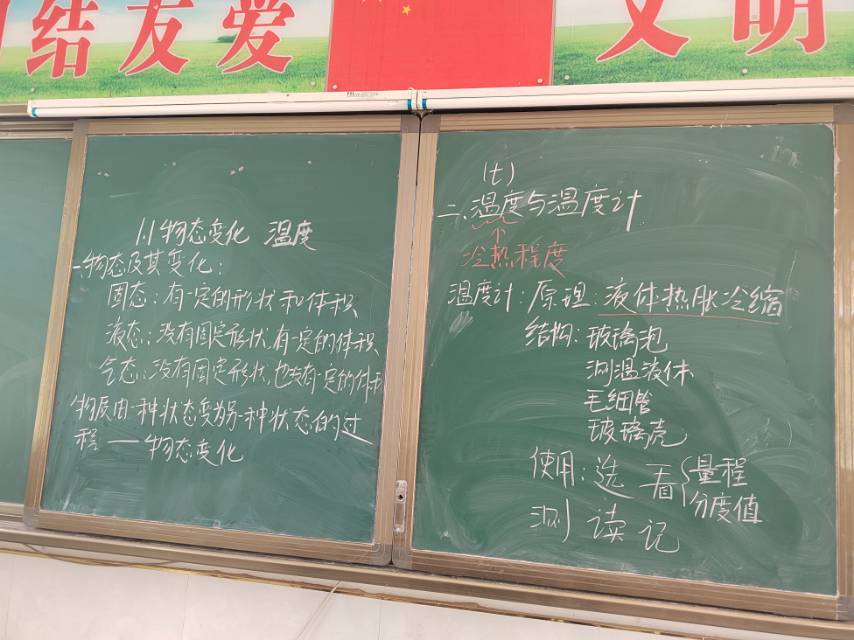 结友爱
文明
1.1物态变化 温度
一物态及其变化:
固态:有一定的形状和体积
液态:没有固定形状,有一定的体积
气态:没有固定形状,也没有一定的体积
物质由一种状态变为另一种状态的过
程——物态变化
(t)
二.温度与温度计
冷热程度
温度计:原理:液体热胀冷缩
结构:玻璃泡
测温液体
毛细管
玻璃壳
使用:选 看{量程
分度值
测 读 记